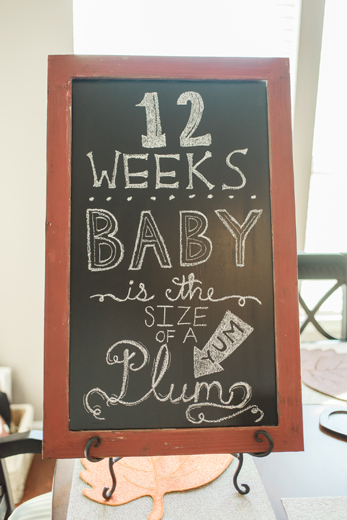 12
WEEKS
BABY
is the
SIZE
OF A
YUM
Plum